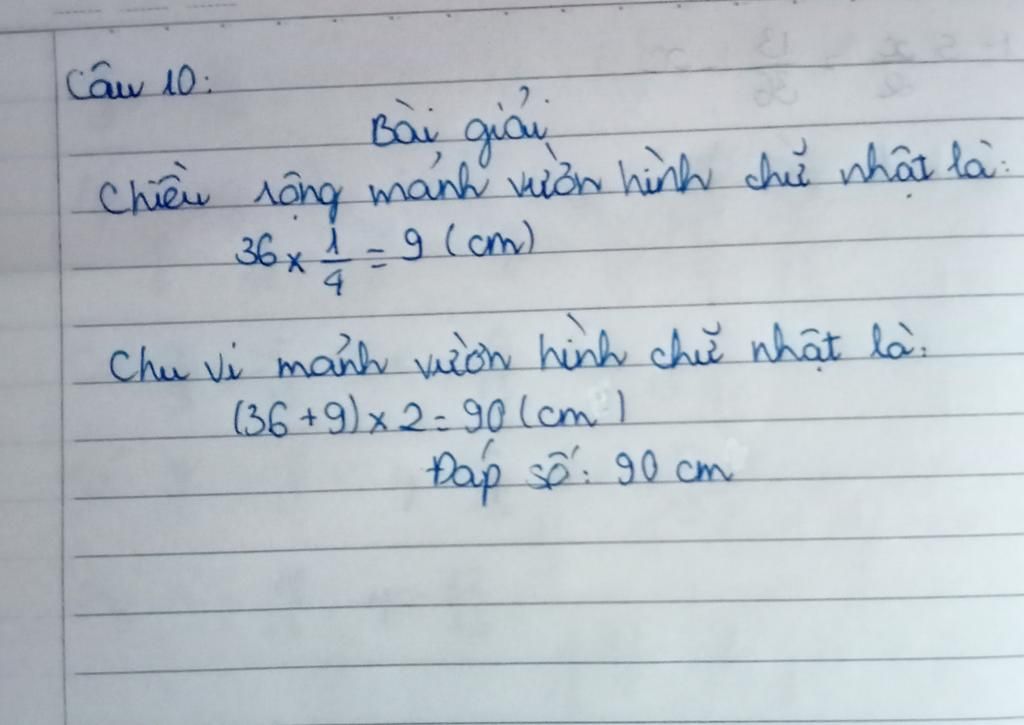 Câu 10:
Bài giải
Chiều rộng mảnh vườn hình chữ nhật là:
36 x 1/4 = 9 (cm)
Chu vi mảnh vườn hình chữ nhật là:
(36 + 9) x 2 = 90 (cm)
Đáp số: 90 cm